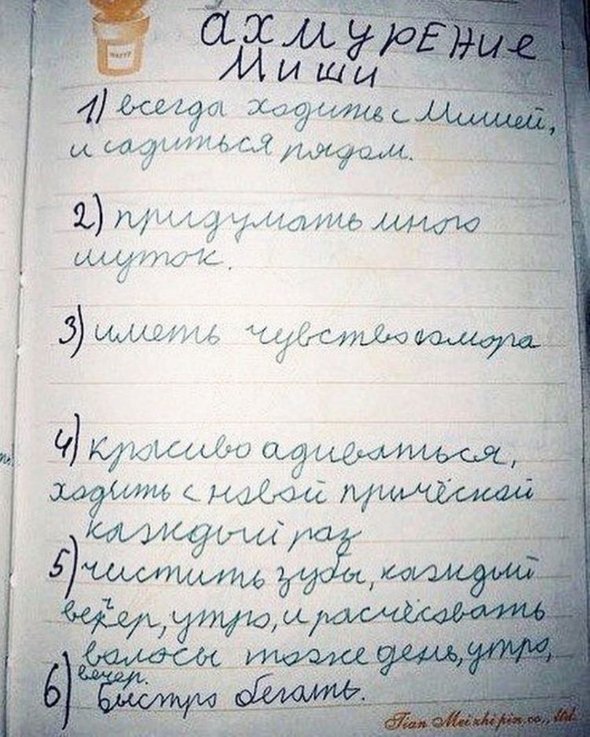 HAPPY
АХМУРЕНИЕ
МИШИ
1) всегда ходить с Мишей,
и садиться рядом.
2) придумать много
шуток.
3) иметь чувство юмора
4) красиво адиваться,
ходить с новой причёской
каждый раз
5) чистить зубы, каждый
вечер, утро, и расчёсовать
волосы тоже день, утро,
вечер.
6) Быстро бегать.
Tian Meizhipin co., ltd.